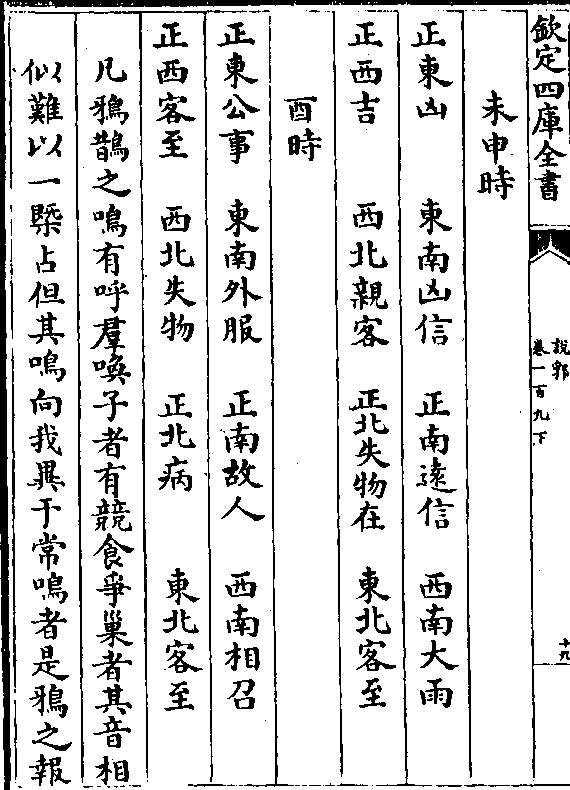 欽定四庫全書
說郛
卷一百九下
十九
未申時
正東凶　東南凶信　正南遠信　西南大雨
正西吉　西北親客　正北失物在　東北客至
酉時
正東公事　東南外服　正南故人　西南相召
正西客至　西北失物　正北病　東北客至
凡鴉鵲之鳴有呼羣喚子者有競食爭巢者其音相
似難以一槩占但其鳴向我異于常鳴者是鴉之報